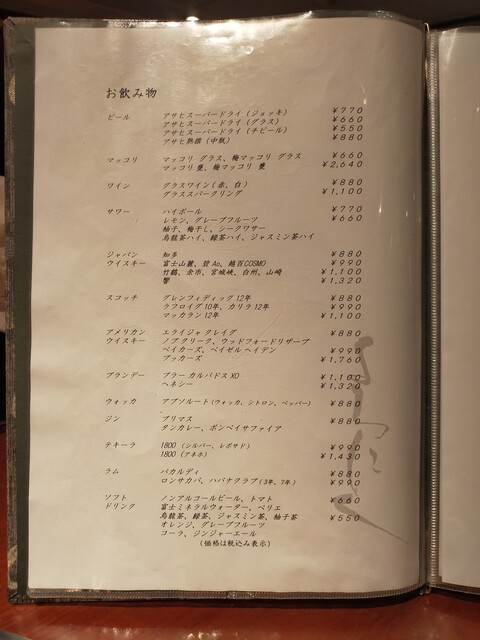 お飲み物
ビール アサヒスーパードライ (ジョッキ) ¥770
アサヒスーパードライ (グラス) ¥660
アサヒスーパードライ (チビール) ¥550
アサヒ熟撰 (中瓶) ¥880
マッコリ マッコリ グラス、梅マッコリ グラス ¥660
マッコリ 甕、梅マッコリ 甕 ¥2,640
ワイン グラスワイン (赤、白) ¥880
グラススパークリング ¥1,100
サワー ハイボール ¥770
レモン、グレープフルーツ ¥660
柚子、梅干し、シークワサー
烏龍茶ハイ、緑茶ハイ、ジャスミン茶ハイ
ジャパン 知多 ¥880
ウイスキー 富士山麓、碧Ao、越百COSMO ¥990
竹鶴、余市、宮城峡、白州、山崎 ¥1,100
響 ¥1,320
スコッチ グレンフィディック 12年 ¥880
ラフロイグ 10年、カリラ 12年 ¥990
マッカラン 12年 ¥1,100
アメリカン エライジャ クレイグ ¥880
ウイスキー ノブ クリーク、ウッドフォードリザーブ
ベイカーズ、ベイゼル ヘイデン ¥990
ブッカーズ ¥1,760
ブランデー ブラー カルバドス XO ¥1,100
ヘネシー ¥1,320
ウォッカ アブソルート (ウォッカ、シトロン、ペッパー) ¥880
ジン プリマス ¥880
タンカレー、ボンベイサファイア
テキーラ 1800 (シルバー、レポサド) ¥990
1800 (アネホ) ¥1,430
ラム バカルディ ¥880
ロンサカパ、ハバナクラブ (3年、7年) ¥990
ソフト ノンアルコールビール、トマト ¥660
ドリンク 富士ミネラルウォーター、ペリエ
烏龍茶、緑茶、ジャスミン茶、柚子茶 ¥550
オレンジ、グレープフルーツ
コーラ、ジンジャーエール
(価格は税込み表示)